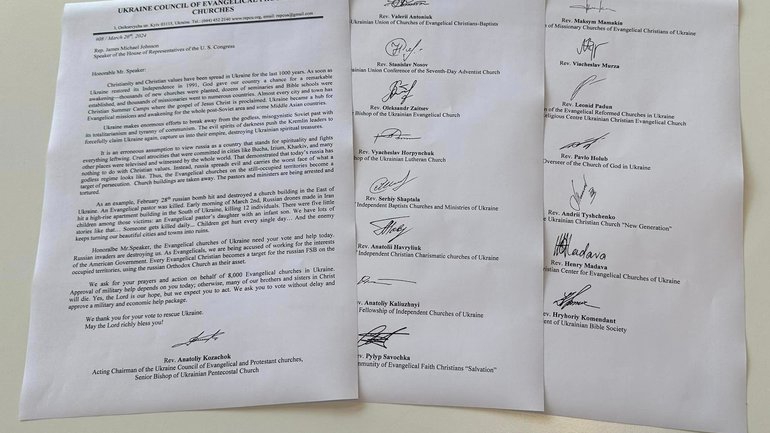 UKRAINE COUNCIL OF EVANGELICAL
CHURCHES
#08 / March 20th, 2024
Rep. James Michael Johnson
Speaker of the House of Representatives of the U. S. Congress
Honorable Mr. Speaker:
Christianity and Christian values have been spread in Ukraine for the last 1000 years. As soon as
Ukraine restored its Independence in 1991, God gave our country a chance for a remarkable
awakening—thousands of new churches were planted, dozens of seminaries and Bible schools were
established, and thousands of missionaries went to numerous countries. Almost every city and town has
Christian Summer Camps where the gospel of Jesus Christ is proclaimed. Ukraine became a hub for
Evangelical missions and awakening for the whole post-Soviet area and some Middle Asian countries.
Ukraine makes enormous efforts to break away from the godless, misogynistic Soviet past with
its totalitarianism and tyranny of communism. The evil spirits of darkness push the Kremlin leaders to
forcefully claim Ukraine again, capture us into their empire, destroying Ukrainian spiritual treasures.
It is an erroneous assumption to view russia as a country that stands for spirituality and fights
everything leftwing. Cruel atrocities that were committed in cities like Bucha, Izium, Kharkiv, and many
other places were televised and witnessed by the whole world. That demonstrated that today's russia has
nothing to do with Christian values. Instead, russia spreads evil and carries the worst face of what a
godless regime looks like. Thus, the Evangelical churches on the still-occupied territories become a
target of persecution. Church buildings are taken away. The pastors and ministers are being arrested and
tortured.
As an example, February 28th russian bomb hit and destroyed a church building in the East of
Ukraine. An Evangelical pastor was killed. Early morning of March 2nd, Russian drones made in Iran
hit a high-rise apartment building in the South of Ukraine, killing 12 individuals. There were five little
children among those victims: an Evangelical pastor's daughter with an infant son. We have lots of
stories like that… Someone gets killed daily... Children get hurt every single day… And the enemy
keeps turning our beautiful cities and towns into ruins.
Honoralbe Mr.Speaker, the Evangelical churches of Ukraine need your vote and help today.
Russian invaders are destroying us. As Evangelicals, we are being accused of working for the interests
of the American Government. Every Evangelical Christian becomes a target for the russian FSB on the
occupied territories, using the russian Orthodox Church as their asset.
We ask for your prayers and action on behalf of 8,000 Evangelical churches in Ukraine.
Approval of military help depends on you today; otherwise, many of our brothers and sisters in Christ
will die. Yes, the Lord is our hope, but we expect you to act. We ask you to vote without delay and
approve a military and economic help package.
We thank you for your vote to rescue Ukraine.
May the Lord richly bless you!
Rev. Anatoliy Kozachok
Acting Chairman of the Ukraine Council of Evangelical and Protestant churches,
Senior Bishop of Ukrainian Pentecostal Church
Rev. Valerii Antoniuk
Union of Churches of Evangelical Christians-Baptists
Rev. Stanislav Nosov
Union Conference of the Seventh-Day Adventist Church
Rev. Oleksandr Zaitsev
Bishop of the Ukrainian Evangelical Church
Rev. Vyacheslav Horpynchuk
of the Ukrainian Lutheran Church
Rev. Serhiy Shaptala
Independent Baptists Churches and Ministries of Ukraine
Rev. Anatolii Havryliuk
Independent Christian Charismatic churches of Ukraine
Rev. Anatoliy Kaliuzhnyi
Fellowship of Independent Churches of Ukraine
Rev. Pylyp Savochka
of Evangelical Faith Christians "Salvation"
Rev. Maksym Mamakin
of Missionary Churches of Evangelical Christians of Ukraine
Rev. Viacheslav Murza
of Ukraine
Rev. Leonid Padun
of the Evangelical Reformed Churches in Ukraine
Centre Ukrainian Christian Evangelical Church
Rev. Pavlo Holub
Overseer of the Church of God in Ukraine
Rev. Andrii Tyshchenko
Ukrainian Christian Church "New Generation"
Madava
Rev. Henry Madava
Christian Center for Evangelical Churches of Ukraine
Rev. Hryhoriy Komendant
of Ukrainian Bible Society